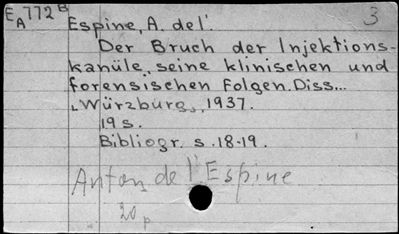 EA772B
Espine, A. del'.
3
Der Bruch der Injektions-
kanüle, seine klinischen und
forensischen Folgen. Diss...
Würzburg, 1937.
19 s.
Bibliogr. s. 18-19.
Anton de l'Espine
20 p